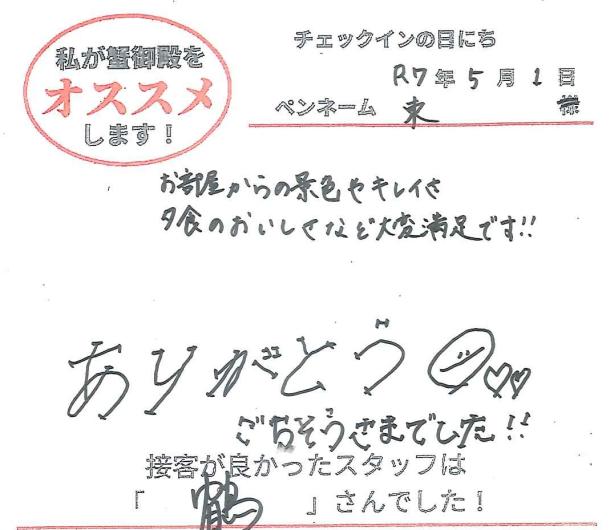 私が蟹御殿を
オススメ
します！
チェックインの日にち
R7年5月1日
ペンネーム 東 様
お部屋からの景色やキレイさ
夕食のおいしさなど大変満足です!!
ありがとう
ごちそうさまでした!!
接客が良かったスタッフは
「鶴」さんでした！